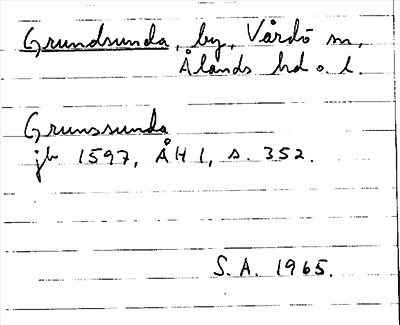 Grundsunda, by, Vårdö sn,
Ålands hd o l.
Grunssunda
jb 1597, ÅH 1, s. 352.
S.A. 1965.